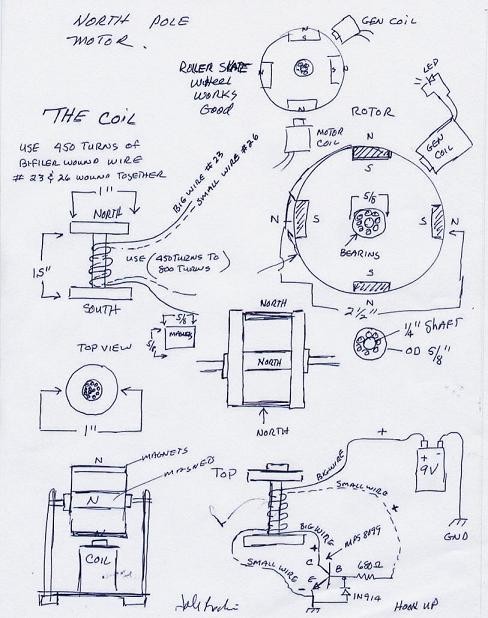 NORTH POLE
MOTOR.
GEN COIL
ROLLER SKATE
WHEEL
WORKS
GOOD
N
S
S
N
LED
GEN
COIL
MOTOR
COIL
ROTOR
THE COIL
USE 450 TURNS of
BIFILER WOUND WIRE
# 23 & 26 WOUND TOGETHER
BIG WIRE # 23
SMALL WIRE # 26
1"
NORTH
1.5"
USE (450 TURNS TO
800 TURNS)
SOUTH
N
S
N
S
5/8
S
N
BEARING
S
N
2 1/2"
5/8
5/8
MAGNET
NORTH
NORTH
NORTH
1/4" SHAFT
OD 5/8"
TOP VIEW
1"
MAGNETS
MAGNETS
N
N
COIL
TOP
BIG WIRE
+
SMALL WIRE
+
+ -
9V
GND
BIG WIRE
+
SMALL WIRE
-
MPS 8099
C
B
E
680Ω
1N914
HOOK UP